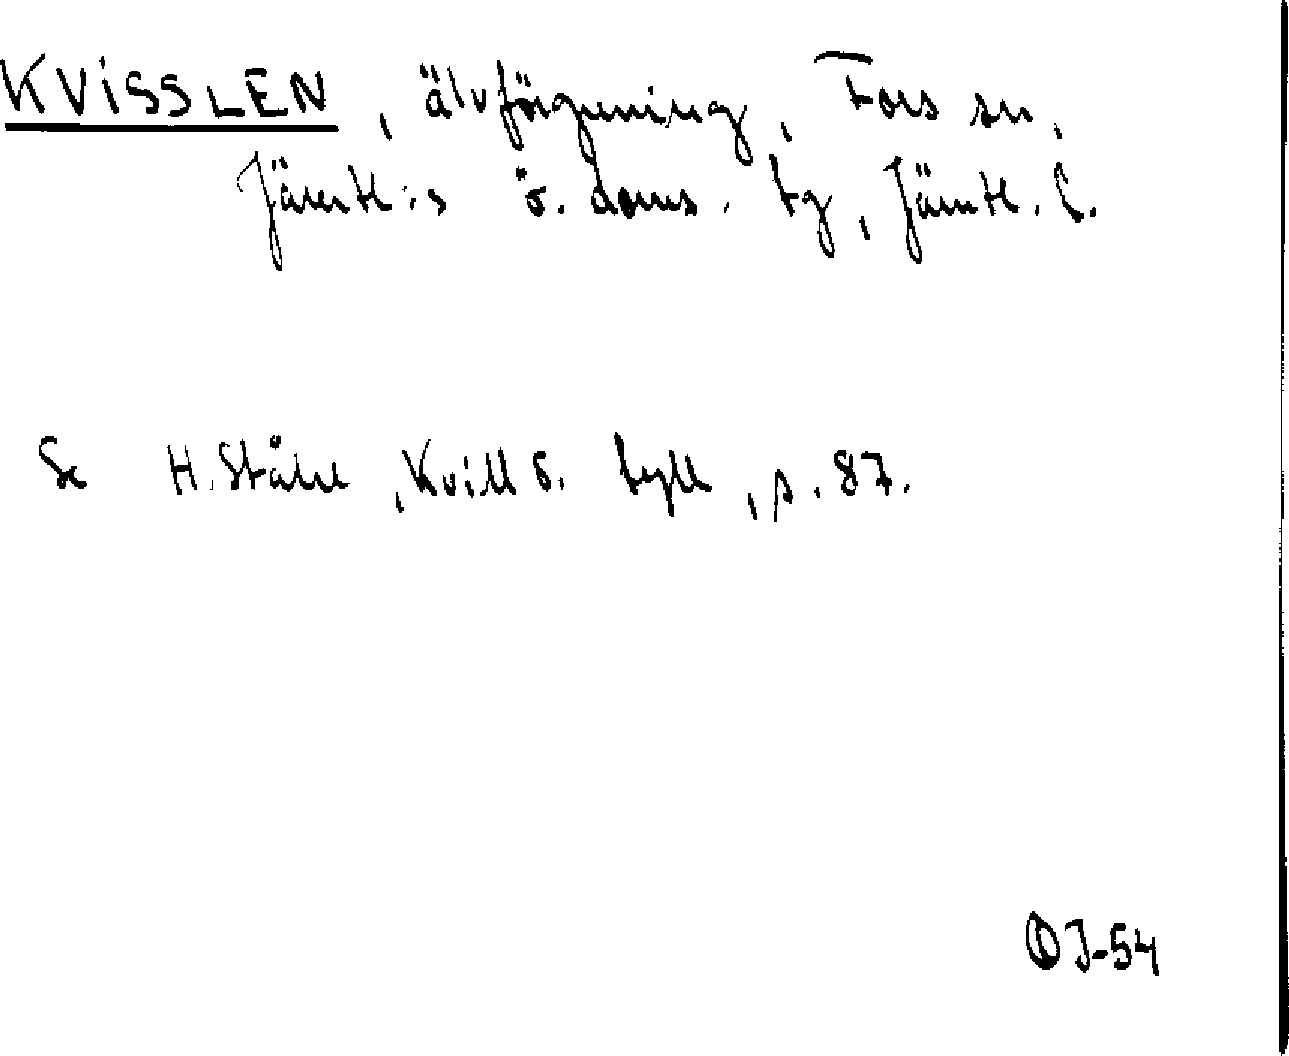 KVISSLEN, älvförgrening, Fors sn,
Jämtl:s ö. doms. tg, Jämtl. l.
Se H. Ståhl, Kvill o. tyll, s. 87.
OJ-54